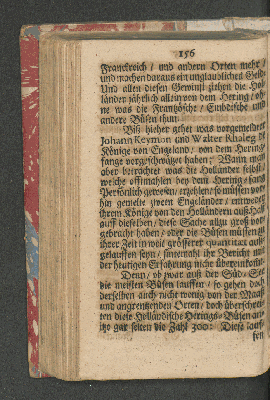 156
Franckreich / und andern Orten mehr /
und machen daraus ein unglaubliches Geld.
Und allen diesen Gewinst ziehen die Hol-
länder jährlich allein von dem Hering / oh-
ne was die Frantzösche / Embdische und
andere Büsen thun.
Biß hieher gehet was vorgemeldete
Johann Keymon und Walter Rhaleg
Könige von Engeland / von dem Hering-
fange vorgeschwätzet haben; Wann man
aber betrachtet was die Holländer selbst /
welche offtmahlen bey dem Hering-Fang
Persöhnlich gewesen / erzehlen / so müssen
gemelte zween Engeländer / entweder
ihrem Könige von den Holländern auß Haß
auff dieselben / diese Sache allzu groß vor-
gebracht haben / oder die Büsen müssen zu
ihrer Zeit in weit grösserer quantität auß-
gelauffen seyn / sintemahl ihr Bericht mit
der heutigen Erfahrung nicht überein kommt.
Denn / ob zwar auß der Süd-See
die meisten Büsen lauffen / so gehen doch
derselben auch nicht wenig von der Maaß
und angrentzenden Orten / doch überschrei-
ten diese Holländische Herings-Büsen an-
itzo gar selten die Zahl 300: Diese lauf-
fen